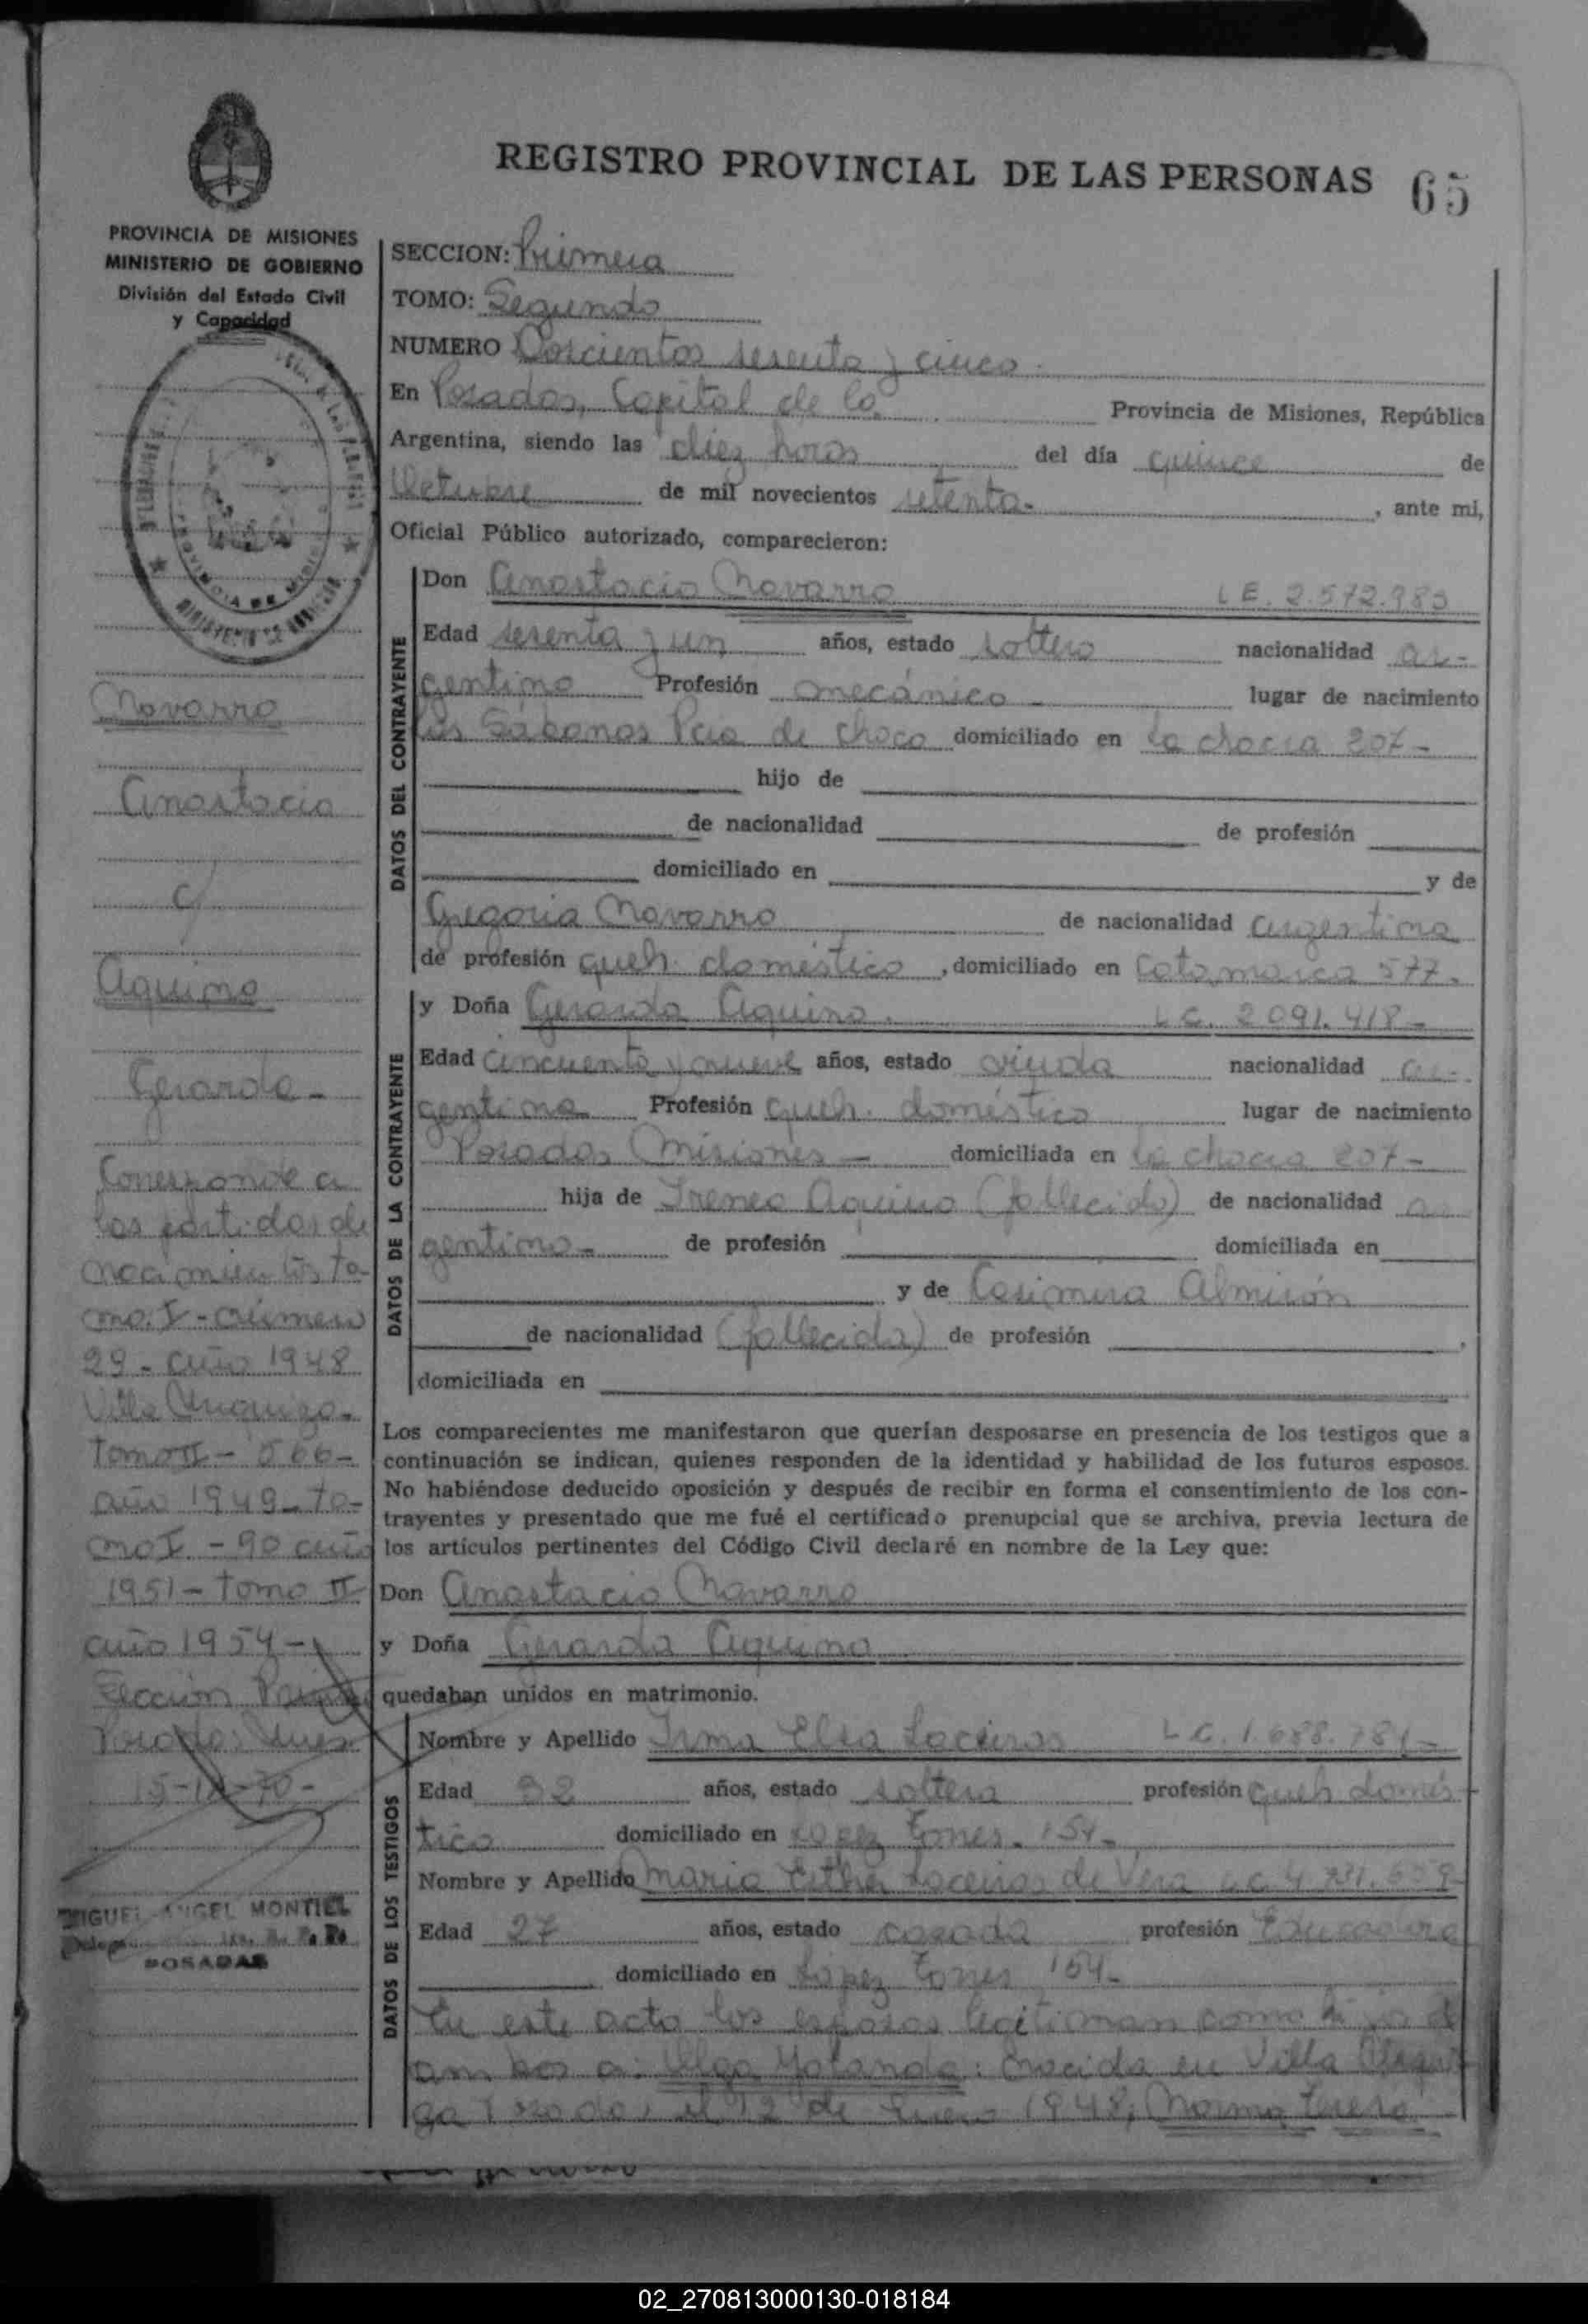 REGISTRO PROVINCIAL DE LAS PERSONAS 65
PROVINCIA DE MISIONES
MINISTERIO DE GOBIERNO
División del Estado Civil
y Capacidad
SECCION: Primera
TOMO: Segundo
NUMERO Doscientos sesenta y cinco.
En Posadas, Capital de la Provincia de Misiones, República
Argentina, siendo las diez horas del día quince de
Octubre de mil novecientos setenta. , ante mi,
Oficial Público autorizado, comparecieron:
DATOS DEL CONTRAYENTE
Don Anastacio Navarro LE. 2.572.983
Edad sesenta y un años, estado soltero nacionalidad ar-
gentino Profesión mecánico - lugar de nacimiento
las Sábanas Pcia de Chaco domiciliado en la chacra 207-
hijo de
de nacionalidad de profesión
domiciliado en y de
Gregoria Navarro de nacionalidad argentina
de profesión queh. doméstico , domiciliado en Catamarca 577.
DATOS DE LA CONTRAYENTE
y Doña Gerarda Aquino. L C. 2 091. 418-
Edad cincuenta y nueve años, estado viuda nacionalidad ar-
gentina Profesión queh. doméstico lugar de nacimiento
Posadas Misiones - domiciliada en la chacra 207-
hija de Ireneo Aquino (fallecido) de nacionalidad ar
gentino- de profesión domiciliada en
y de Casimira Almirón
de nacionalidad (fallecida) de profesión
domiciliada en
Los comparecientes me manifestaron que querían desposarse en presencia de los testigos que a
continuación se indican, quienes responden de la identidad y habilidad de los futuros esposos.
No habiéndose deducido oposición y después de recibir en forma el consentimiento de los con-
trayentes y presentado que me fué el certificado prenupcial que se archiva, previa lectura de
los artículos pertinentes del Código Civil declaré en nombre de la Ley que:
Don Anastacio Navarro
y Doña Gerarda Aquino
quedaban unidos en matrimonio.
DATOS DE LOS TESTIGOS
Nombre y Apellido Irma Elsa L C. 1.688.781-
Edad 32 años, estado soltera profesión queh domés-
tico domiciliado en López Torres. 154-
Nombre y Apellido Maria Esther de Vera L C 4
Edad 27 años, estado casada profesión
domiciliado en López Torres 154-
En este acto los esposos legitiman como hijo d
ambos a: Olga Yolanda: nacida en Villa
el 12 de Enero 1948, Norma Teresa
Navarro
Anastacio
y
Aquino
Gerarda-
Corresponde a
las partidas de
nacimientos to-
mo: I - número
29 - año 1948
Villa Urquiza-
Tomo II - 566-
año 1949 - to-
mo I - 90 año
1951 - tomo II
año 1954 -
Sección
Posadas
15-10-70-
MIGUEL ANGEL MONTIEL
POSADAS
02_270813000130-018184